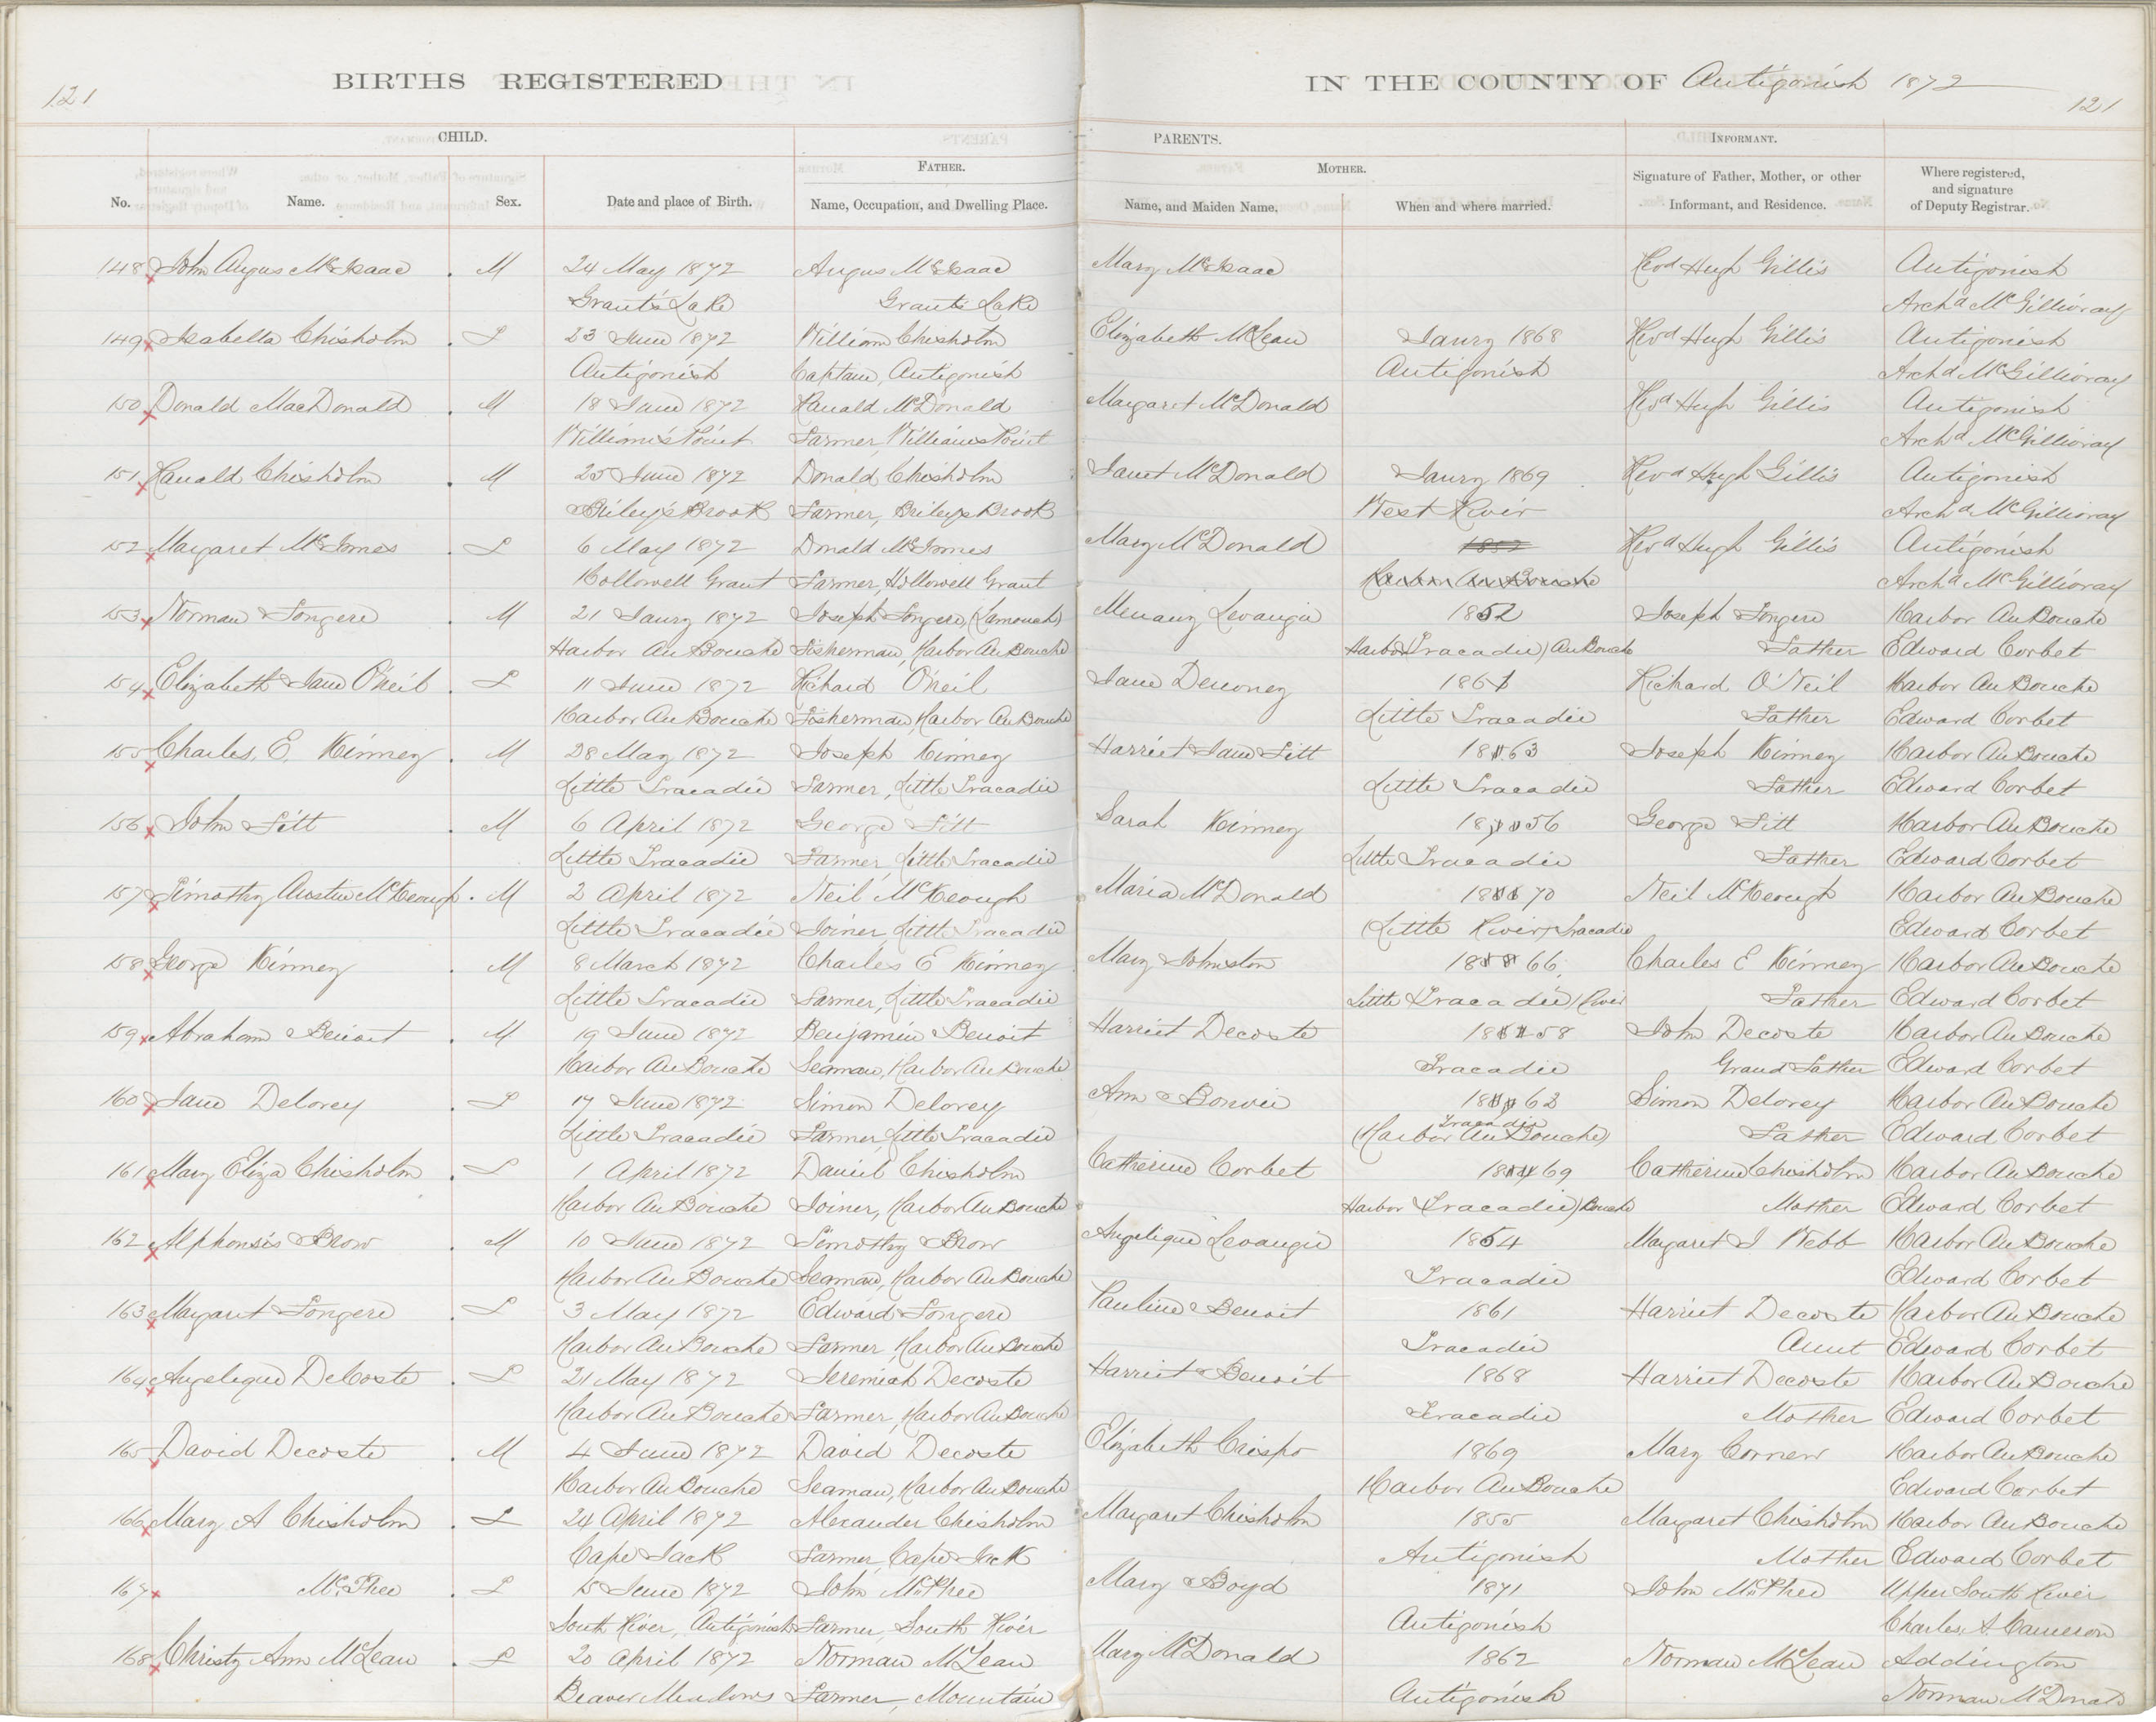 121
BIRTHS REGISTERED
IN THE COUNTY OF Antigonish 1872
121
CHILD.
PARENTS.
INFORMANT.
FATHER.
MOTHER.
No. Name. Sex. Date and place of Birth. Name, Occupation, and Dwelling Place. Name, and Maiden Name. When and where married. Signature of Father, Mother, or other Informant, and Residence. Where registered, and signature of Deputy Registrar.
148 John Angus McIsaac . M 24 May 1872 Angus McIsaac Mary McIsaac Revd Hugh Gillis Antigonish
Grant's Lake Grants Lake Archd McGillivray
149 Isabella Chisholm . F 23 June 1872 William Chisholm Elizabeth McLean Jaury 1868 Revd Hugh Gillis Antigonish
Antigonish Captain, Antigonish Antigonish Archd McGillivray
150 Donald MacDonald . M 18 June 1872 Ranald McDonald Margaret McDonald Revd Hugh Gillis Antigonish
William's Point Farmer, Williams Point Archd McGillivray
151 Ranald Chisholm . M 25 June 1872 Donald Chisholm Janet McDonald Jaury 1869 Revd Hugh Gillis Antigonish
Briley's Brook Farmer, Brileys Brook West River Archd McGillivray
152 Margaret McInnes . F 6 May 1872 Donald McInnes Mary McDonald 1852 Revd Hugh Gillis Antigonish
Hollowell Grant Farmer, Hollowell Grant Harbor Au Bouche Archd McGillivray
153 Norman Fongere . M 21 Jaury 1872 Joseph Fongere, (Lamouche) Menany Levangie 1852 Joseph Fongere Harbor Au Bouche
Harbor Au Bouche Fisherman, Harbor Au Bouche Harbor (Tracadie) Au Bouche Father Edward Corbet
154 Elizabeth Jane O'Neil . F 11 June 1872 Richard O'Neil Jane Deuoney 1861 Richard O'Neil Harbor Au Bouche
Harbor Au Bouche Fisherman, Harbor Au Bouche Little Tracadie Father Edward Corbet
155 Charles, E. Kinney . M 28 May 1872 Joseph Kinney Harriet Jane Fitt 1863 Joseph Kinney Harbor Au Bouche
Little Tracadie Farmer, Little Tracadie Little Tracadie Father Edward Corbet
156 John Fitt . M 6 April 1872 George Fitt Sarah Kinney 1856 George Fitt Harbor Au Bouche
Little Tracadie Farmer, Little Tracadie Little Tracadie Father Edward Corbet
157 Timothy Austin McKeough . M 2 April 1872 Neil McKeough Maria McDonald 1870 Neil McKeough Harbor Au Bouche
Little Tracadie Joiner, Little Tracadie (Little River) Tracadie Edward Corbet
158 George Kinney . M 8 March 1872 Charles E Kinney Mary Johnston 1866 Charles E Kinney Harbor Au Bouche
Little Tracadie Farmer, Little Tracadie Little (Tracadie) River Father Edward Corbet
159 Abraham Benoit . M 19 June 1872 Benjamin Benoit Harriet Decoste 1858 John Decoste Harbor Au Bouche
Harbor Au Bouche Seaman, Harbor Au Bouche Tracadie Grand Father Edward Corbet
160 Jane Delorey . F 17 June 1872 Simon Delorey Ann Bonvie 1862 Simon Delorey Harbor Au Bouche
Little Tracadie Farmer, Little Tracadie Tracadie (Harbor Au Bouche) Father Edward Corbet
161 Mary Eliza Chisholm . F 1 April 1872 Daniel Chisholm Catherine Corbet 1869 Catherine Chisholm Harbor Au Bouche
Harbor Au Bouche Joiner, Harbor Au Bouche Harbor (Tracadie) Bouche Mother Edward Corbet
162 Alphonsis Brow . M 10 June 1872 Timothy Brow Angelique Levangie 1854 Margaret J Webb Harbor Au Bouche
Harbor Au Bouche Seaman, Harbor Au Bouche Tracadie Edward Corbet
163 Margaret Fongere . F 3 May 1872 Edward Fongere Pauline Benoit 1861 Harriet Decoste Harbor Au Bouche
Harbor Au Bouche Farmer, Harbor Au Bouche Tracadie Aunt Edward Corbet
164 Angelique DeCoste . F 21 May 1872 Jeremiah Decoste Harriet Benoit 1868 Harriet Decoste Harbor Au Bouche
Harbor Au Bouche Farmer, Harbor Au Bouche Tracadie Mother Edward Corbet
165 David Decoste . M 4 June 1872 David Decoste Elizabeth Crispo 1869 Mary Corner Harbor Au Bouche
Harbor Au Bouche Seaman, Harbor Au Bouche Harbor Au Bouche Edward Corbet
166 Mary A Chisholm . F 24 April 1872 Alexander Chisholm Margaret Chisholm 1855 Margaret Chisholm Harbor Au Bouche
Cape Jack Farmer, Cape Jack Antigonish Mother Edward Corbet
167 McPhee . F 15 June 1872 John McPhee Mary Boyd 1871 John McPhee Upper South River
South River, Antigonish Farmer, South River Antigonish Charles A Cameron
168 Christy Ann McLean . F 20 April 1872 Norman McLean Mary McDonald 1862 Norman McLean Addington
Beaver Meadows Farmer, Mountain Antigonish Norman McDonald